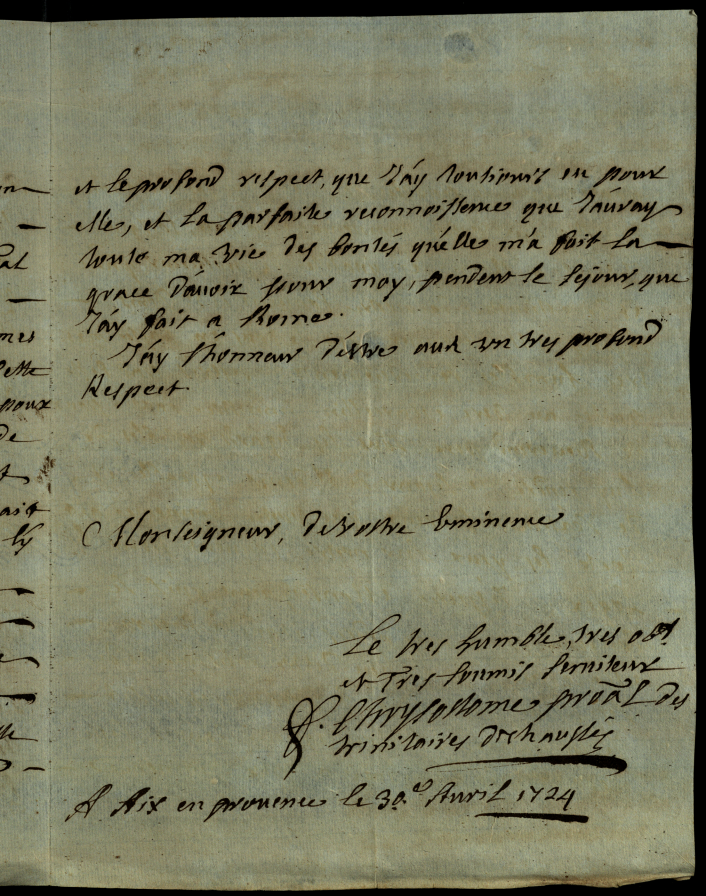 et le profond respect, que J'áy toutiours eu pour
elle, et la parfaite reconnoissence que J'áuray
toute ma vie des bontés qu'elle m'a fait la
grace d'áuoir pour moy, pendent le sejour, que
J'áy fait a Rome.
J'áy l'honneur d'éstre auec un tres profond
Respect
Monseigneur, de vostre Eminence
Le tres humble, tres obt.
et Tres soumis seruiteur
f. Chrysostome proāl des
trinitaires déchaussés
A Aix en prouence le 30.e Auril 1724